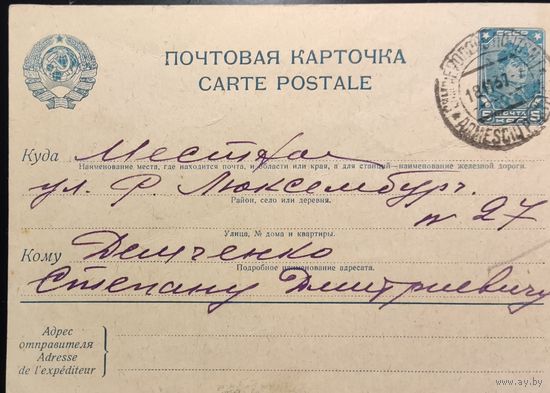 ПОЧТОВАЯ КАРТОЧКА
CARTE POSTALE
СССР
ПОЧТА
18 11 37
Куда Местная
Наименование места, где находится почта, и области или края, а для станций—наименование железной дороги.
ул. Р. Люксембург.
Район, село или деревня.
n 27
Улица, № дома и квартиры.
Кому Демченко
Подробное наименование адресата.
Степану Дмитриевичу
Адрес
отправителя
Adresse
de l'expéditeur
www.ay.by